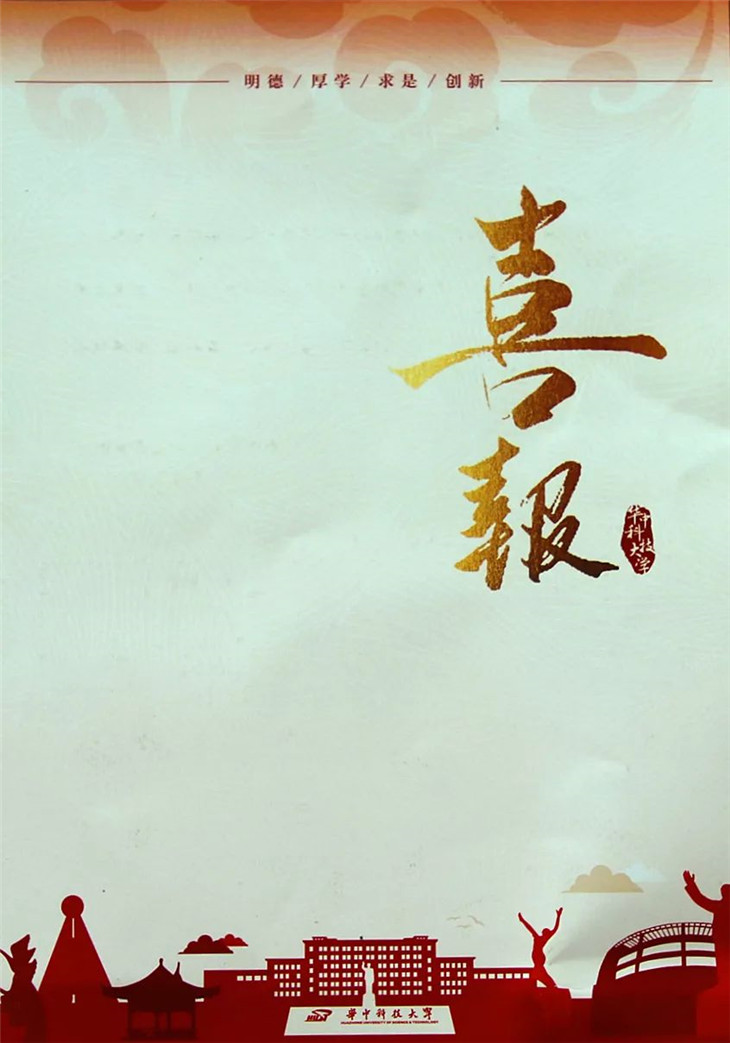 明德/厚学/求是/创新
喜
報
华中
科技
大学
華中科技大學
HUAZHONG UNIVERSITY OF SCIENCE & TECHNOLOGY